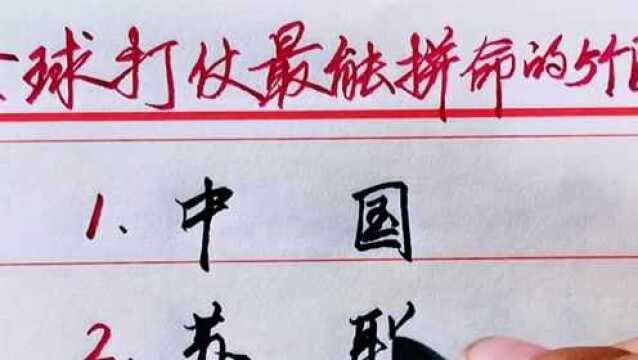 球打仗最能拼命的5个
1、中国
2、苏联